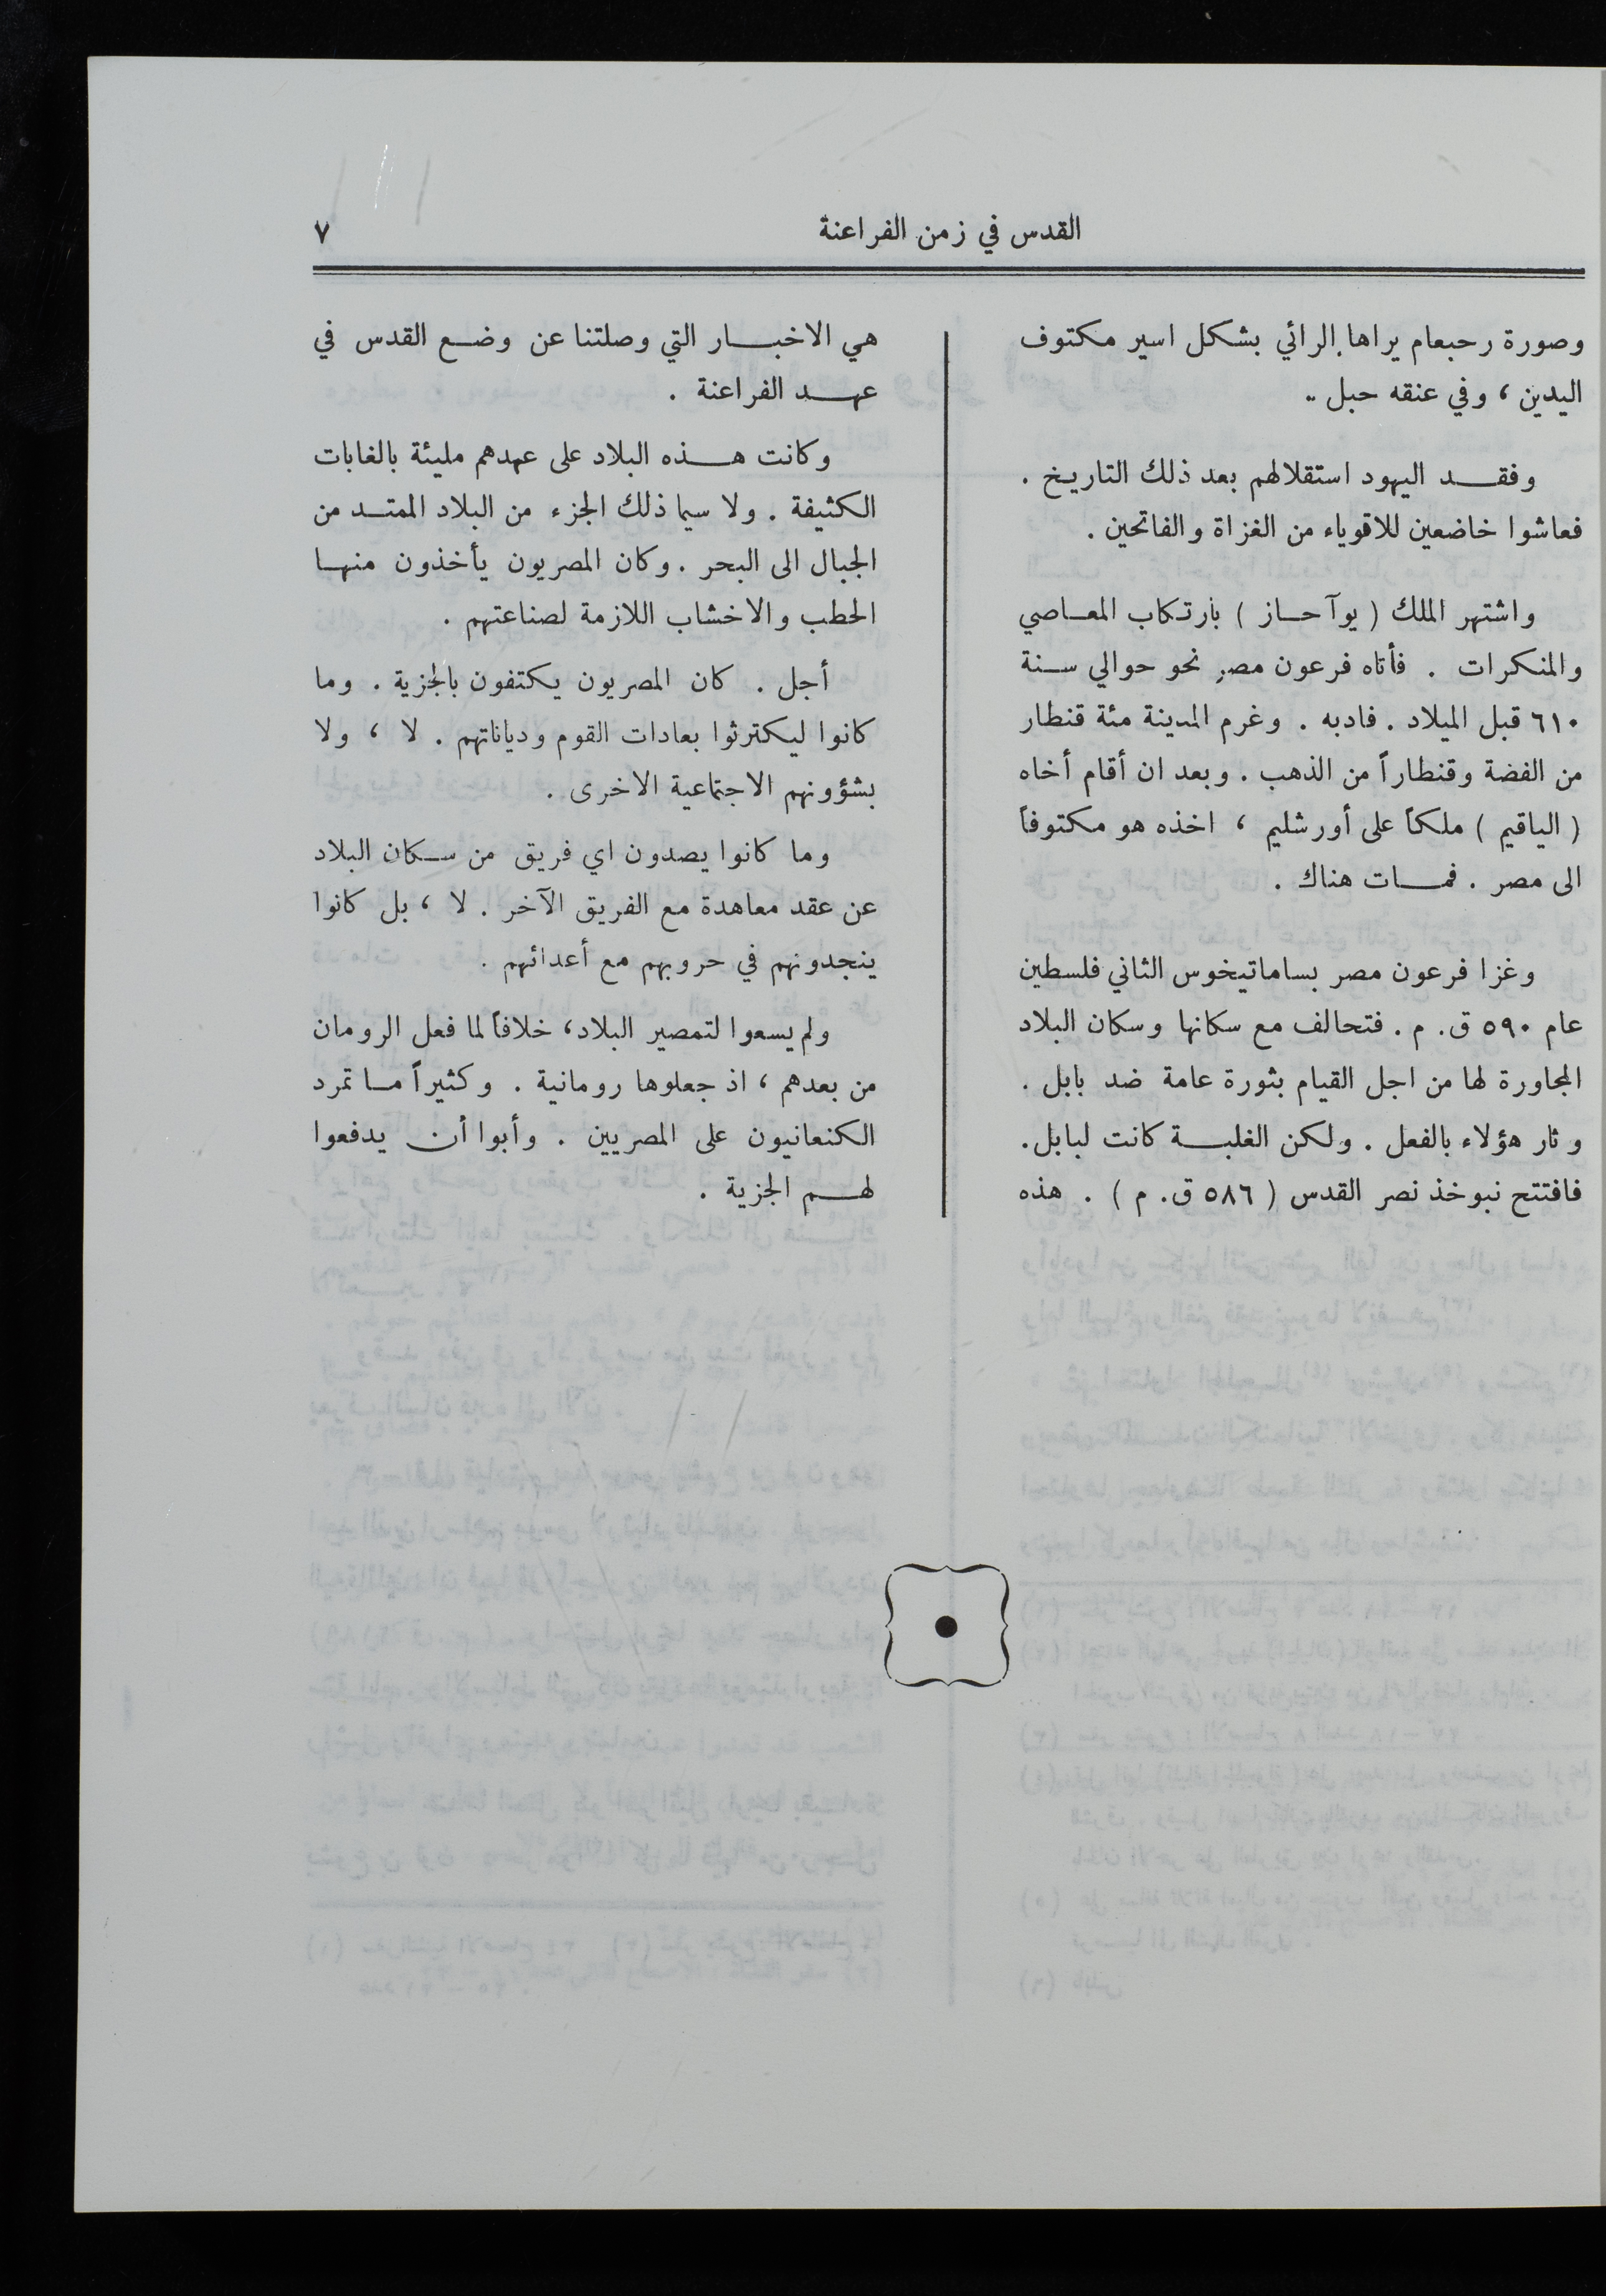 القدس في زمن الفراعنة
٧
وصورة رحبعام يراها الرائي بشكل اسير مكتوف
اليدين ، وفي عنقه حبل ..
وفقد اليهود استقلالهم بعد ذلك التاريخ .
فعاشوا خاضعين للاقوياء من الغزاة والفاتحين .
واشتهر الملك ( يوآحاز ) بارتكاب المعاصي
والمنكرات . فأتاه فرعون مصر نحو حوالي سنة
٦١٠ قبل الميلاد . فادبه . وغرم المدينة مئة قنطار
من الفضة وقنطاراً من الذهب . وبعد ان أقام أخاه
( الياقيم ) ملكاً على أورشليم ، اخذه هو مكتوفاً
الى مصر . فمات هناك .
وغزا فرعون مصر بساماتيخوس الثاني فلسطين
عام ٥٩٠ ق. م . فتحالف مع سكانها وسكان البلاد
المجاورة لها من اجل القيام بثورة عامة ضد بابل .
وثار هؤلاء بالفعل . ولكن الغلبة كانت لبابل .
فافتتح نبوخذ نصر القدس ( ٥٨٦ ق. م ) . هذه
هي الاخبار التي وصلتنا عن وضع القدس في
عهد الفراعنة .
وكانت هذه البلاد على عهدهم مليئة بالغابات
الكثيفة . ولا سيما ذلك الجزء من البلاد الممتد من
الجبال الى البحر . وكان المصريون يأخذون منها
الحطب والاخشاب اللازمة لصناعتهم .
أجل . كان المصريون يكتفون بالجزية . وما
كانوا ليكترثوا بعادات القوم ودياناتهم . لا ، ولا
بشؤونهم الاجتماعية الاخرى .
وما كانوا يصدون اي فريق من سكان البلاد
عن عقد معاهدة مع الفريق الآخر . لا ، بل كانوا
ينجدونهم في حروبهم مع أعدائهم .
ولم يسعوا لتمصير البلاد، خلافاً لما فعل الرومان
من بعدهم ، اذ جعلوها رومانية . وكثيراً ما تمرد
الكنعانيون على المصريين . وأبوا أن يدفعوا
لهم الجزية .